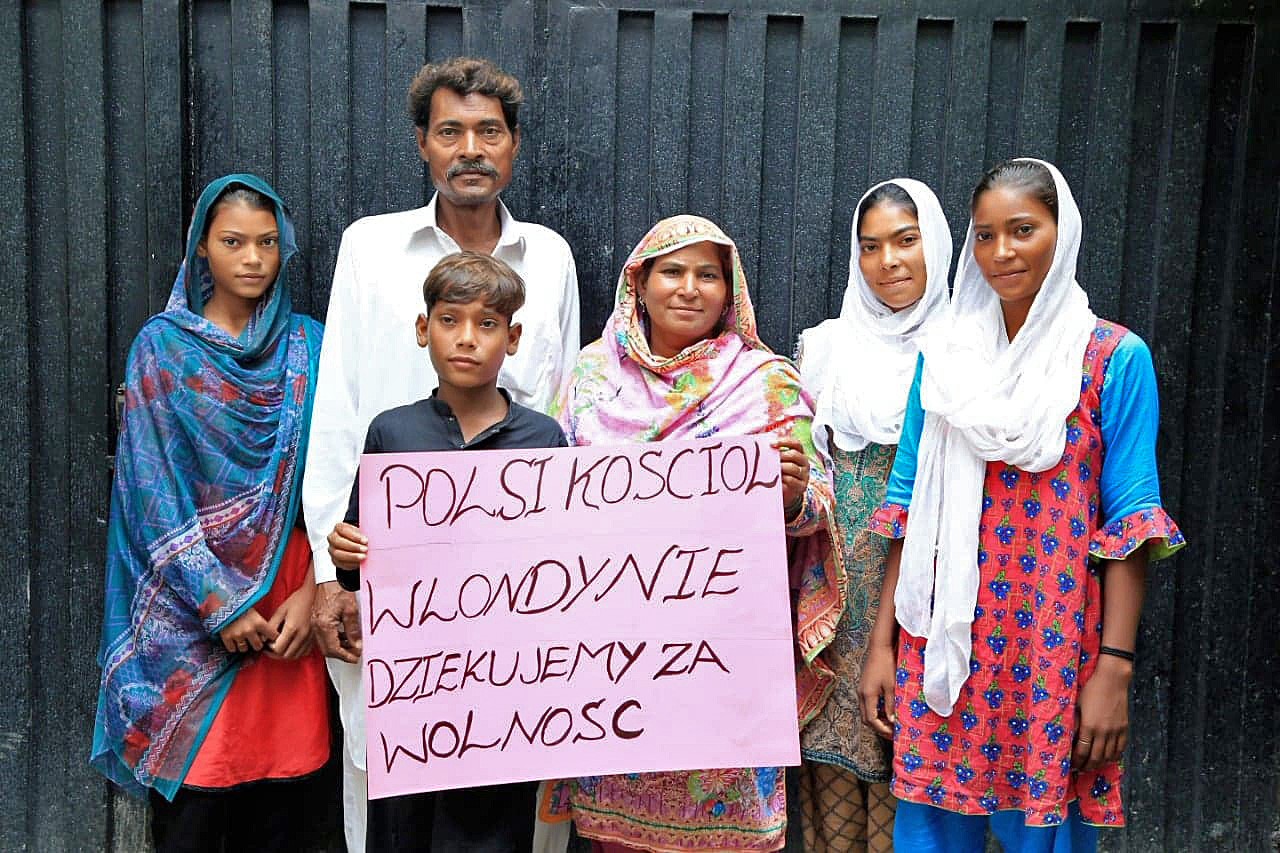 POLSI KOSCIOL
WLONDYNIE
DZIEKUJEMY ZA
WOLNOSC